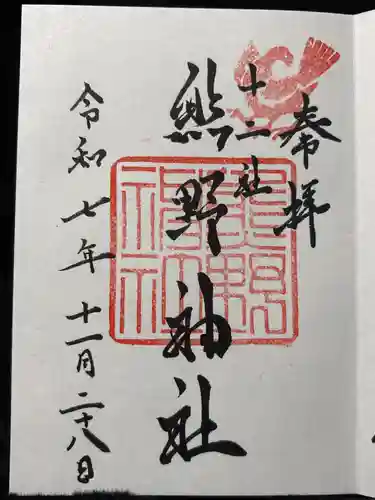 奉拝
十二社
熊野神社
令和七年十一月二十八日
熊野
神社